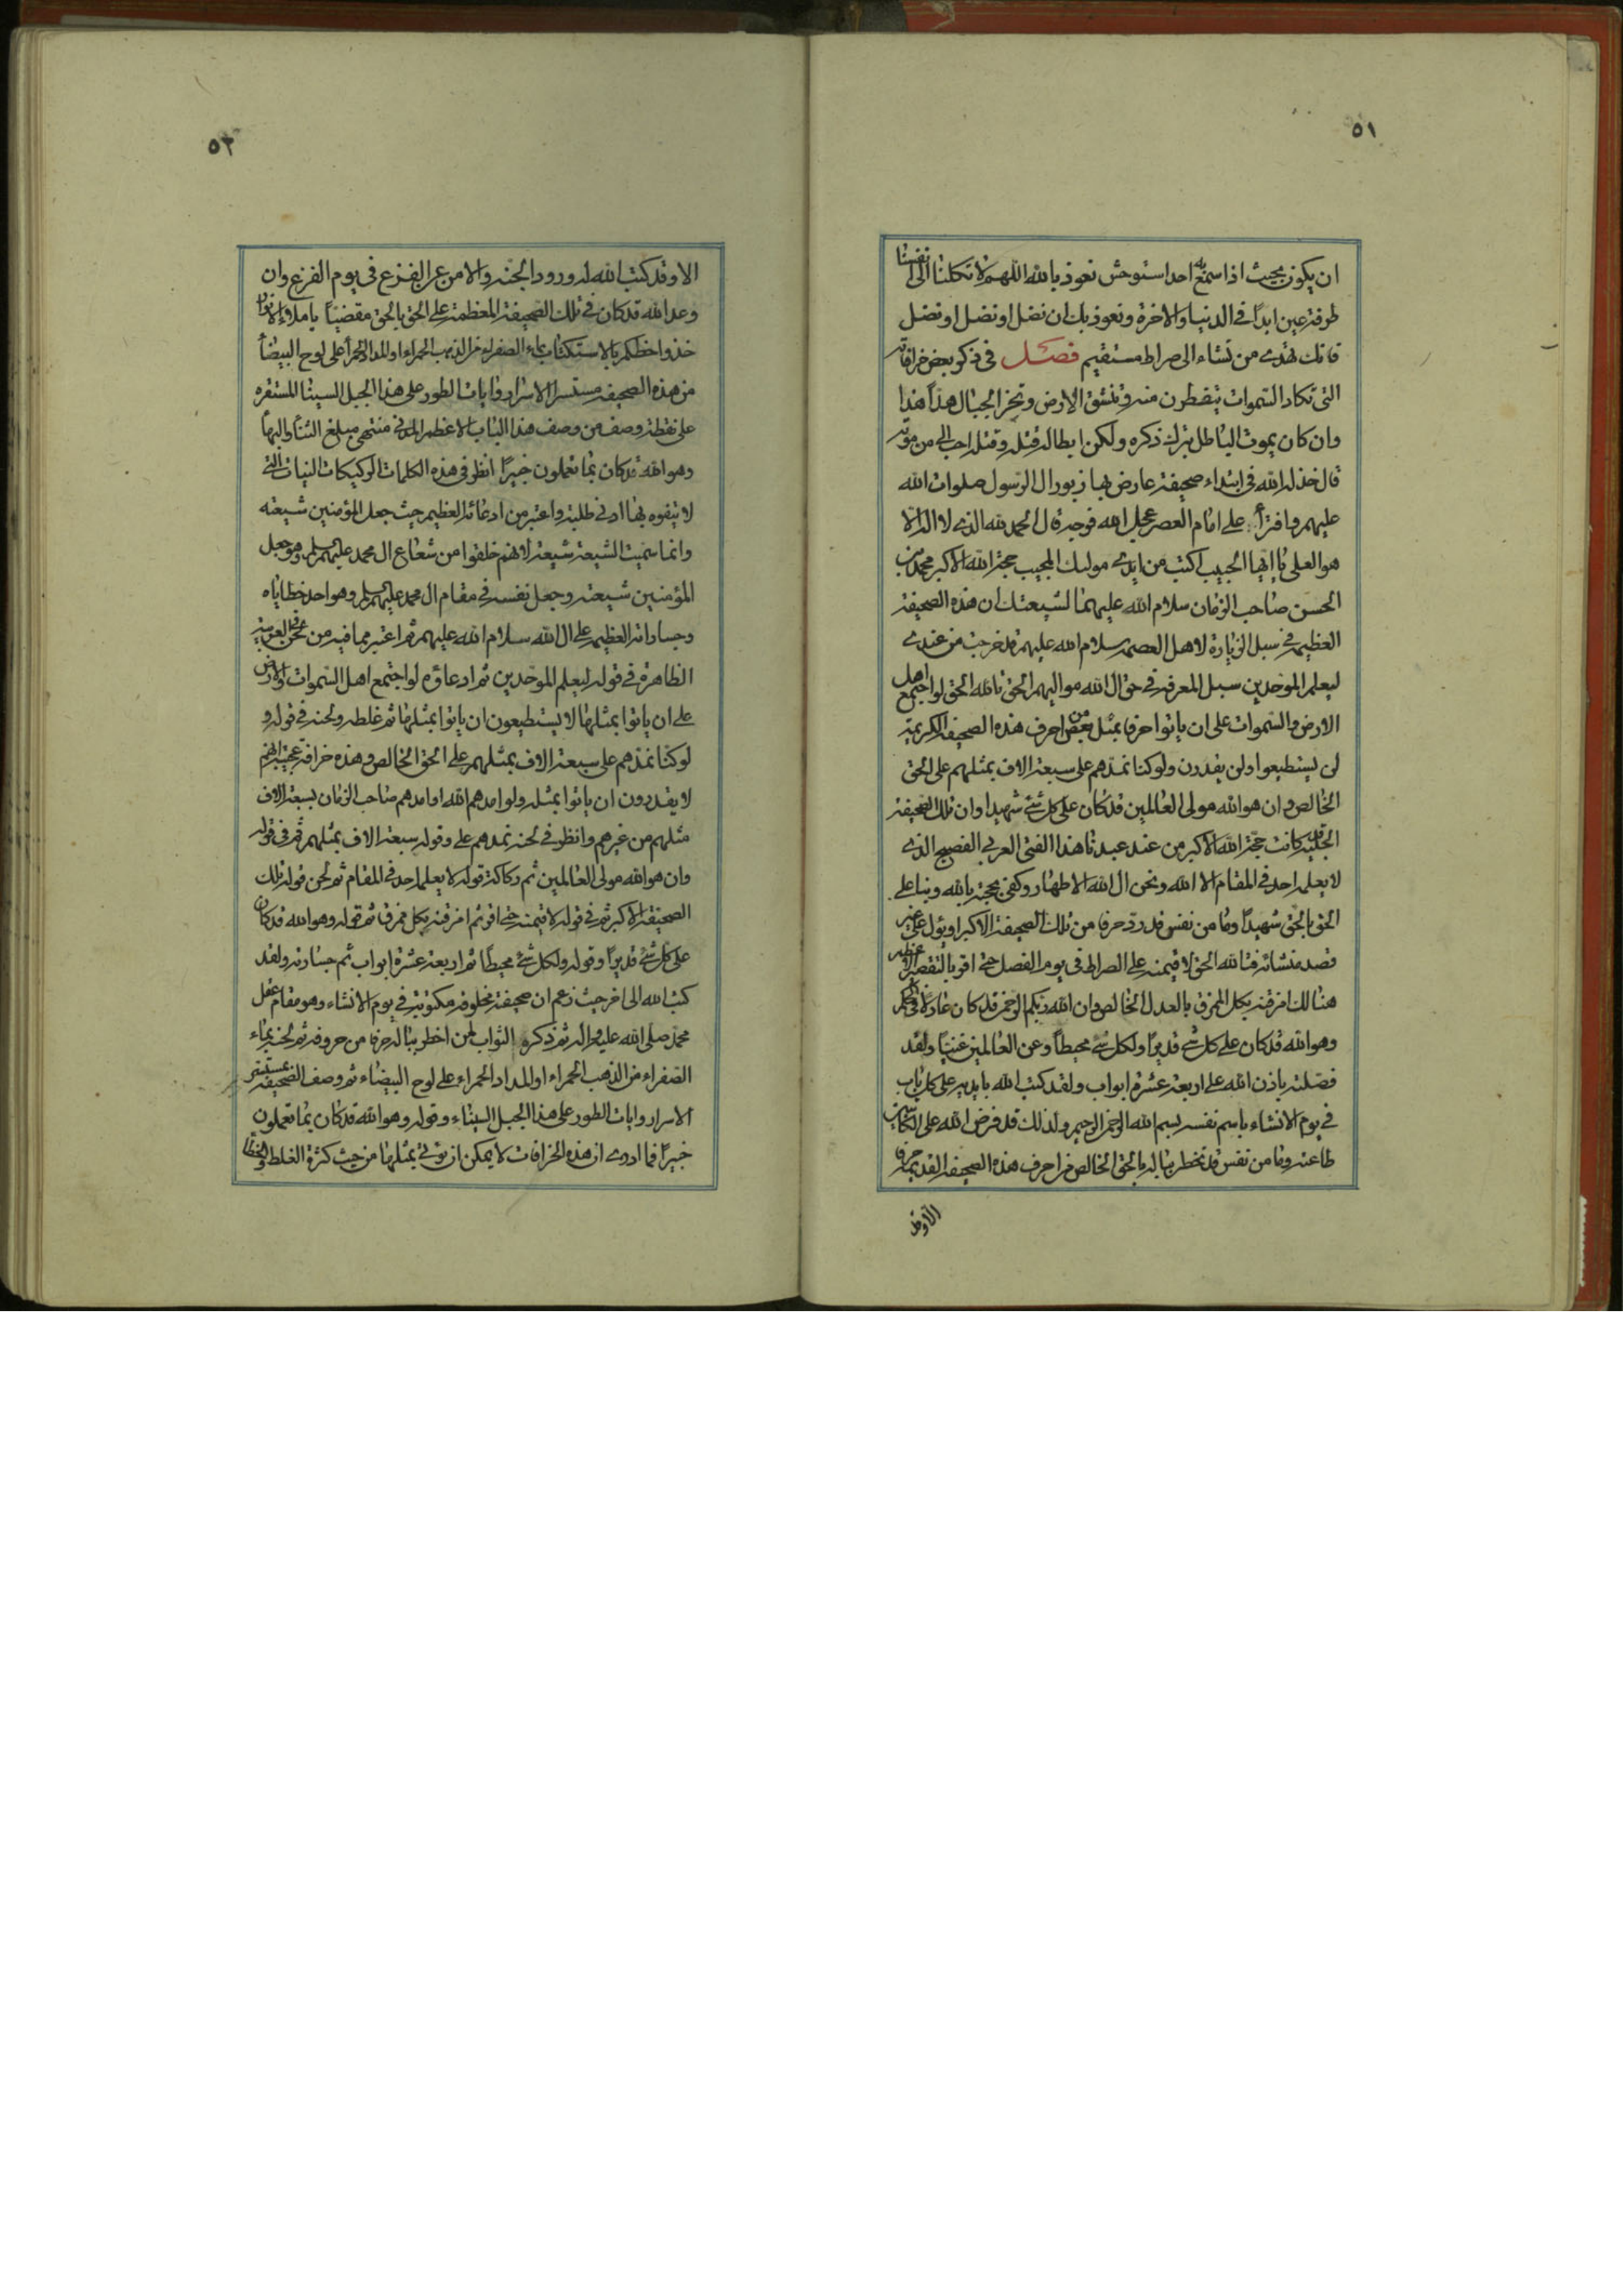 ٥١
ان يكون بحيث اذا سمع به احد استوحش نعوذ بالله اللهم لا تكلنا الى انفسنا
طرفة عين ابدًا في الدنيا والاخرة ونعوذ بك ان نضل او نضل او نضل
فانك تهدي من تشاء الى صراط مستقيم فصل في ذكر بعض خرافاته
التي تكاد السموات يتفطرن منه وتنشق الارض وتخر الجبال هدًا هذا
وان كان يموت الباطل بترك ذكره ولكن ابطاله قتله وقتله احب الي من موته
قال خذله الله في ابتداء صحيفة عارض بها زبور ال الرسول صلوات الله
عليهم وافترأ على امام العصر عجل الله فرجه قال الحمد لله الذي لا اله الا
هو العلي يا ايها الحبيب اكتب من ايدي موليك المجيب حجة الله الاكبر محمد بن
الحسن صاحب الزمان سلام الله عليهما لشيعتك ان هذه الصحيفة
العظيمة في سبل الزيارة لاهل العصمة سلام الله عليهم قد خرجت من عندي
ليعلم الموحدين سبل المعرفة في حق ال الله مواليهم الحق تالله الحق لو اجتمع اهل
الارض والسموات على ان ياتوا حرفا بمثل بعض من احرف هذه الصحيفة الكريمة
لن يستطيعوا ولن يقدرن ولو كنا نمدهم على سبعة الاف بمثلهم على الحق
الخالص وان هو الله مولى العالمين قد كان على كل شئ شهيدا وان تلك الصحيفة
الجليلة قد كانت حجة الله الاكبر من عند عبدنا هذا الفتى العربي الفصيح الذي
لا يعلمه احد في المقام الا الله ونحن ال الله الاطهار وكفى بحجته بالله وبنا على
الحق بالحق شهيدًا وما من نفس قد رد حرفا من تلك الصحيفة الاكبر او يئول على غير
قصد منشائه فتالله الحق لاقيمنه على الصراط في يوم الفصل حتى اقر بالتقصير الاعظم
هنالك امزقنه بكل الممزق بالعدل الخالص وان الله ربكم الرحمن قد كان عادلا في الحكم
وهو الله قد كان على كل شئ قديرًا ولكل شئ محيطًا وعن العالمين غنيًا ولقد
فصلته باذن الله على اربعة عشرة ابواب ولقد كتب الله بايديه على كل باب
في يوم الانشاء باسم نفسه بسم الله الرحمن الرحيم ولذلك قد فرض الله على الكاتبين
طاعته وما من نفس قد يخطر بباله بالحق الخالص من احرف هذه الصحيفة القديمة حرفا
الا وقد
٥٢
الا وقد كتب الله له ورود الجنة والامن عن الفزع في يوم الفزع وان
وعد الله قد كان في تلك الصحيفة المعظمة على الحق بالحق مقضيًا يا ملاء الانوار
خذوا حظكم بالاستكتاب بماء الصفراء من الذهب الحمراء او المداد الحمرأ على لوح البيضأ
من هذه الصحيفة مستسر الاسرار وايات الطور على هذا الجبل السينا المستقره
على نقطة وصف من وصف هذا الباب الاعظم الذي منتهى مبلغ الثنأ واليهأ
وهو الله قد كان بما تعملون خبيرًا انظر في هذه الكلمات الركيكات النيات التي
لا يتفوه بها ادنى طلبة واعتبر من ادعائه العظيم حيث جعل المؤمنين شيعته
وانما سميت الشيعة شيعة لانهم خلقوا من شعاع ال محمد عليهم السلم وهو جعل
المؤمنين شيعته وجعل نفسه في مقام ال محمد عليهم السلم وهو احد خطاياه
وجساراته العظيمة على ال الله سلام الله عليهم ثم اعتبر مما فيه من لحن العربية
الظاهرة في قوله ليعلم الموحدين ثم ادعاؤه لو اجتمع اهل السموات والارض
على ان ياتوا بمثلها لا يستطيعون ان ياتوا بمثلها ثم غلطه ولحنه في قوله و
لو كنا نمدهم على سبعة الاف بمثلهم على الحق الخالص وهذه خرافة عجيبة انهم
لا يقدرون ان ياتوا بمثله ولو امدهم الله او امدهم صاحب الزمان بسبعة الاف
مثلهم من غيرهم وانظر في لحنه نمدهم على وقوله سبعة الاف بمثلهم ثم في قوله
وان هو الله مولى العالمين ثم ركاكة قوله لا يعلمه احد في المقام ثم لحن قوله تلك
الصحيفة الاكبر ثم في قوله لاقيمنه حتى اقر ثم امزقنه بكل ممزق ثم قوله وهو الله قد كان
على كل شئ قديرًا وقوله ولكل شئ محيطًا ثم اربعة عشرة ابواب ثم جسارته ولقد
كتب الله الى اخر حيث زعم ان صحيفته مخلوقة مكتوبة في يوم الانشاء وهو مقام عقل
محمد صلى الله عليه واله ثم ذكره الثواب لمن اخطر بباله حرفا من حروفه ثم لحنه بماء
الصفراء من الذهب الحمراء او المداد الحمراء على لوح البيضاء ثم وصف الصحيفة بمستسر
الاسرار وايات الطور على هذا الجبل السيناء وقوله وهو الله قد كان بما تعملون
خبيرًا فما ادري ان هذه الخرافات لا يمكن ان يؤتى بمثلها من حيث كثرة الغلط والخطأ